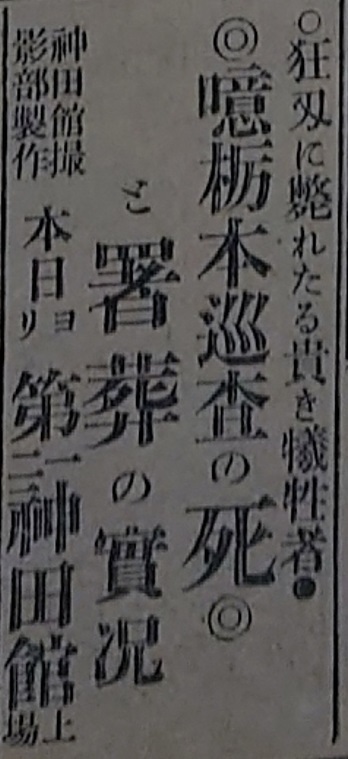 ○狂刄に斃れたる貴き犧牲者●
◎噫栃木巡査の死◎
と署葬の實況
神田館撮影部製作 本日ヨリ 第一二三神田館上場